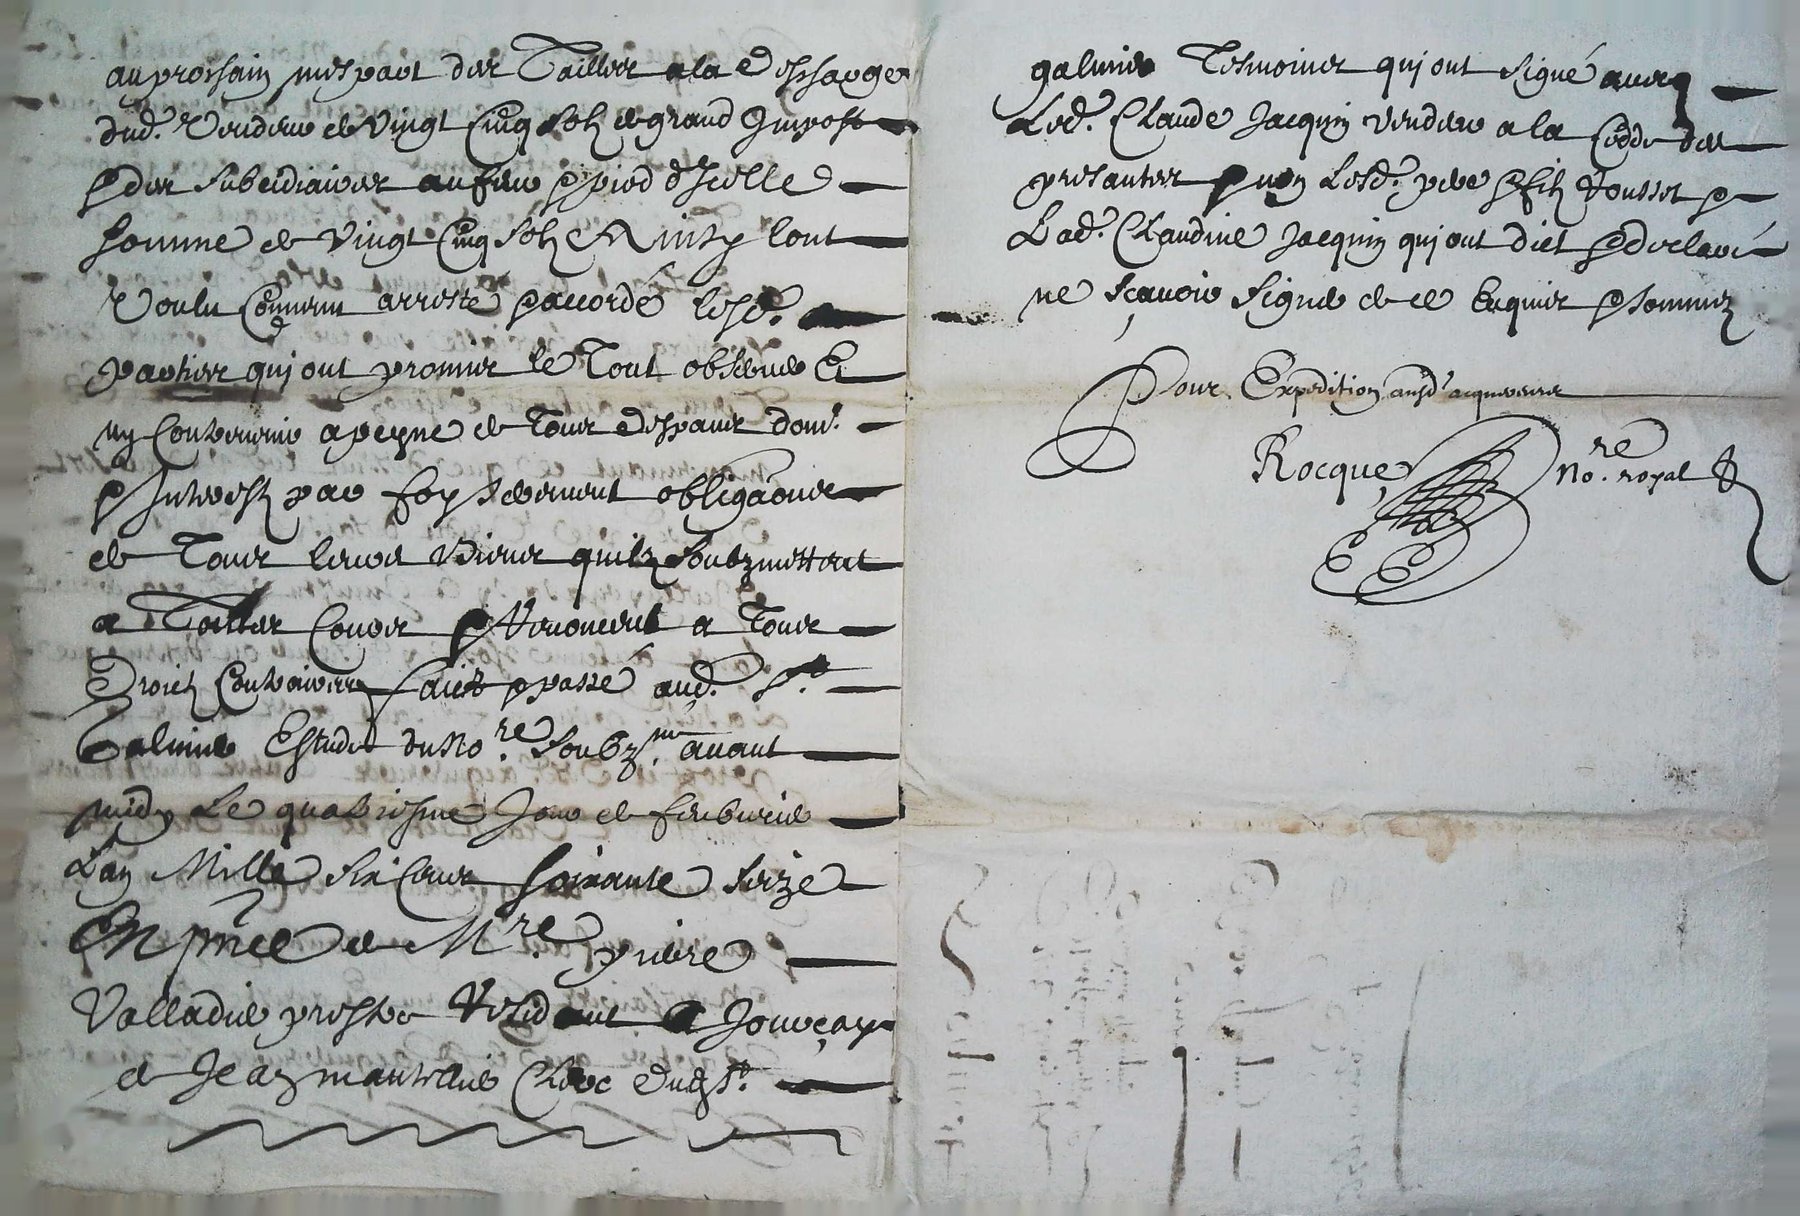 au prochain mespart des Tailles a la descharge
dud. Vendeur de Vingt Cinq solz de grand Impost
& des subcidiaires au feur & pied d'Icelle
somme de Vingt Cinq solz Ainsy lont
Voulu Convenu arresté & accordé lesd.
parties qui ont promis le Tout observer Et
ny Contrevenir a peyne de Tous despans dom.
& Intherestz par foy & serment obligaōns
de Tous leurs Biens quilz soubzmettent
a Toutes Cours & Renoncent a Tous
Droictz Contraires faict & passé aud. St.
Galmier Estude du No.re soubz.né avant
midy Le quatriesme Jour de febvrier
L'an Mille six Cens soixante seize
En pñce de M.re pierre
Valladier prestre Residant a Jourçay
& de Jean mantelier Clerc dud St.
galmier Tesmoins qui ont signé avecq
Led. Claude Jacquin vendeur a la Cedde des
presantes & non Lesd. pere & filz Rousset &
Lad. Claudine Jacquin qui ont dict & declaré
ne sçavoir signer de ce Enquis & sommez
Pour Expedition ausd acquereurs
Rocque No.re royal